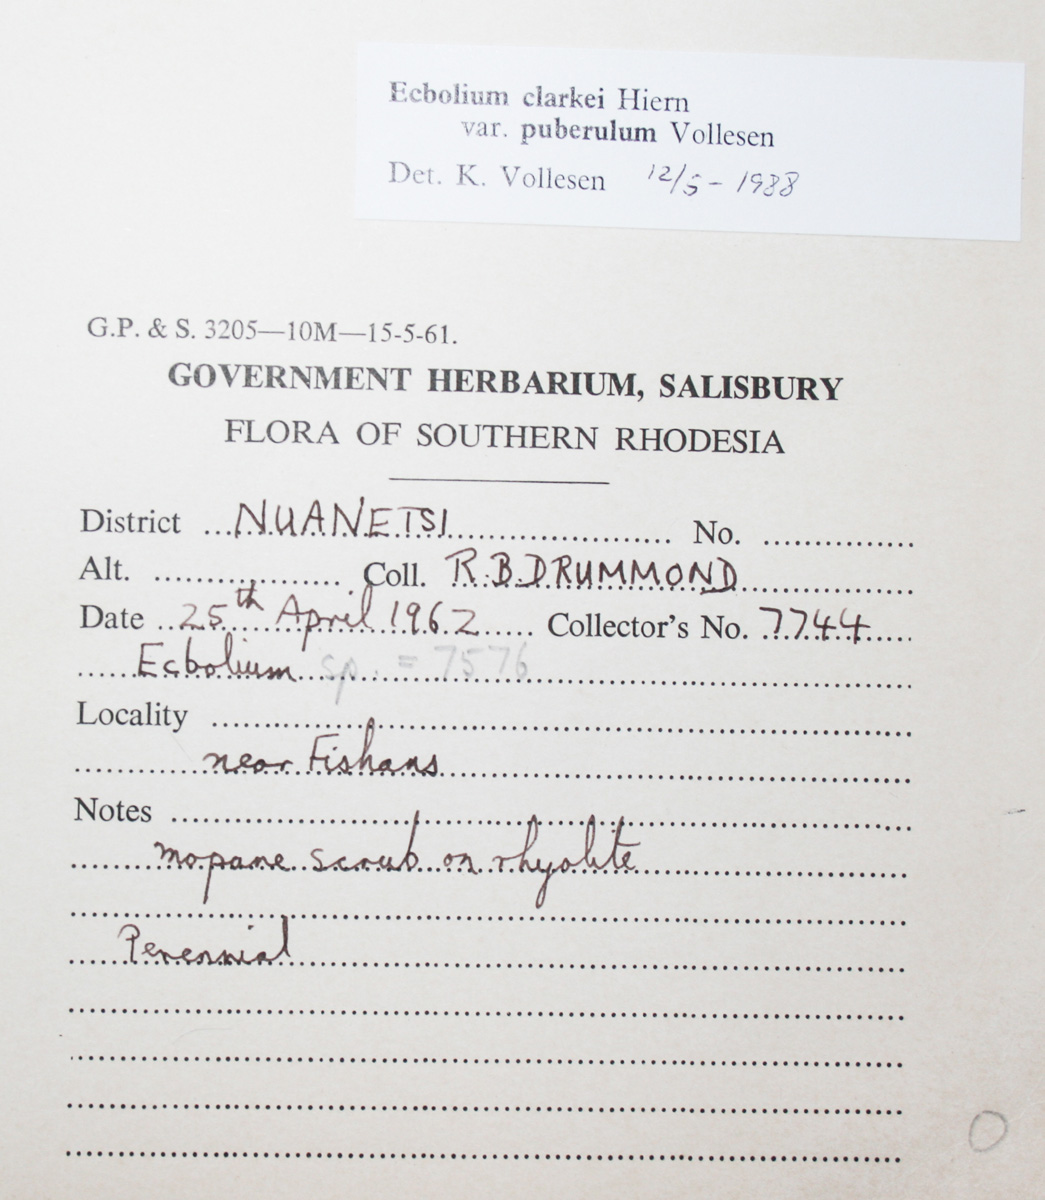 Ecbolium clarkei Hiern
var. puberulum Vollesen
Det. K. Vollesen 12/5 - 1988
G.P. & S. 3205—10M—15-5-61.
GOVERNMENT HERBARIUM, SALISBURY
FLORA OF SOUTHERN RHODESIA
District NUANETSI No.
Alt. Coll. R.B.DRUMMOND
Date 25th April 1962 Collector's No. 7744
Ecbolium sp. = 7576
Locality
near Fishans
Notes
mopane scrub on rhyolite
Perennial